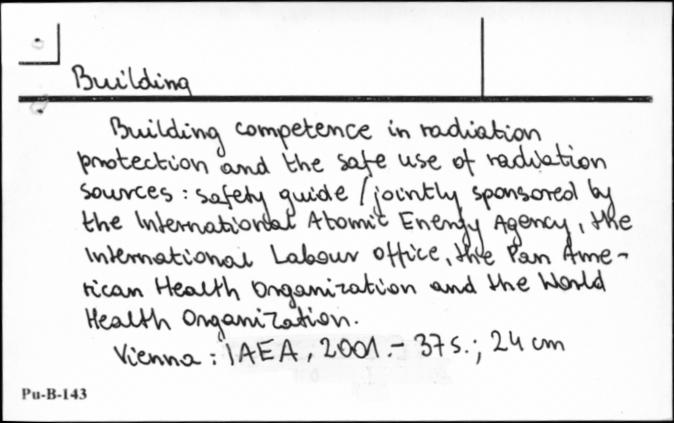 Building
Building competence in radiation
protection and the safe use of radiation
sources : safety guide / jointly sponsored by
the International Atomic Energy Agency, the
International Labour Office, the Pan Ame-
rican Health Organization and the World
Health Organization.
Vienna : IAEA, 2001. - 37 s. ; 24 cm
Pu-B-143